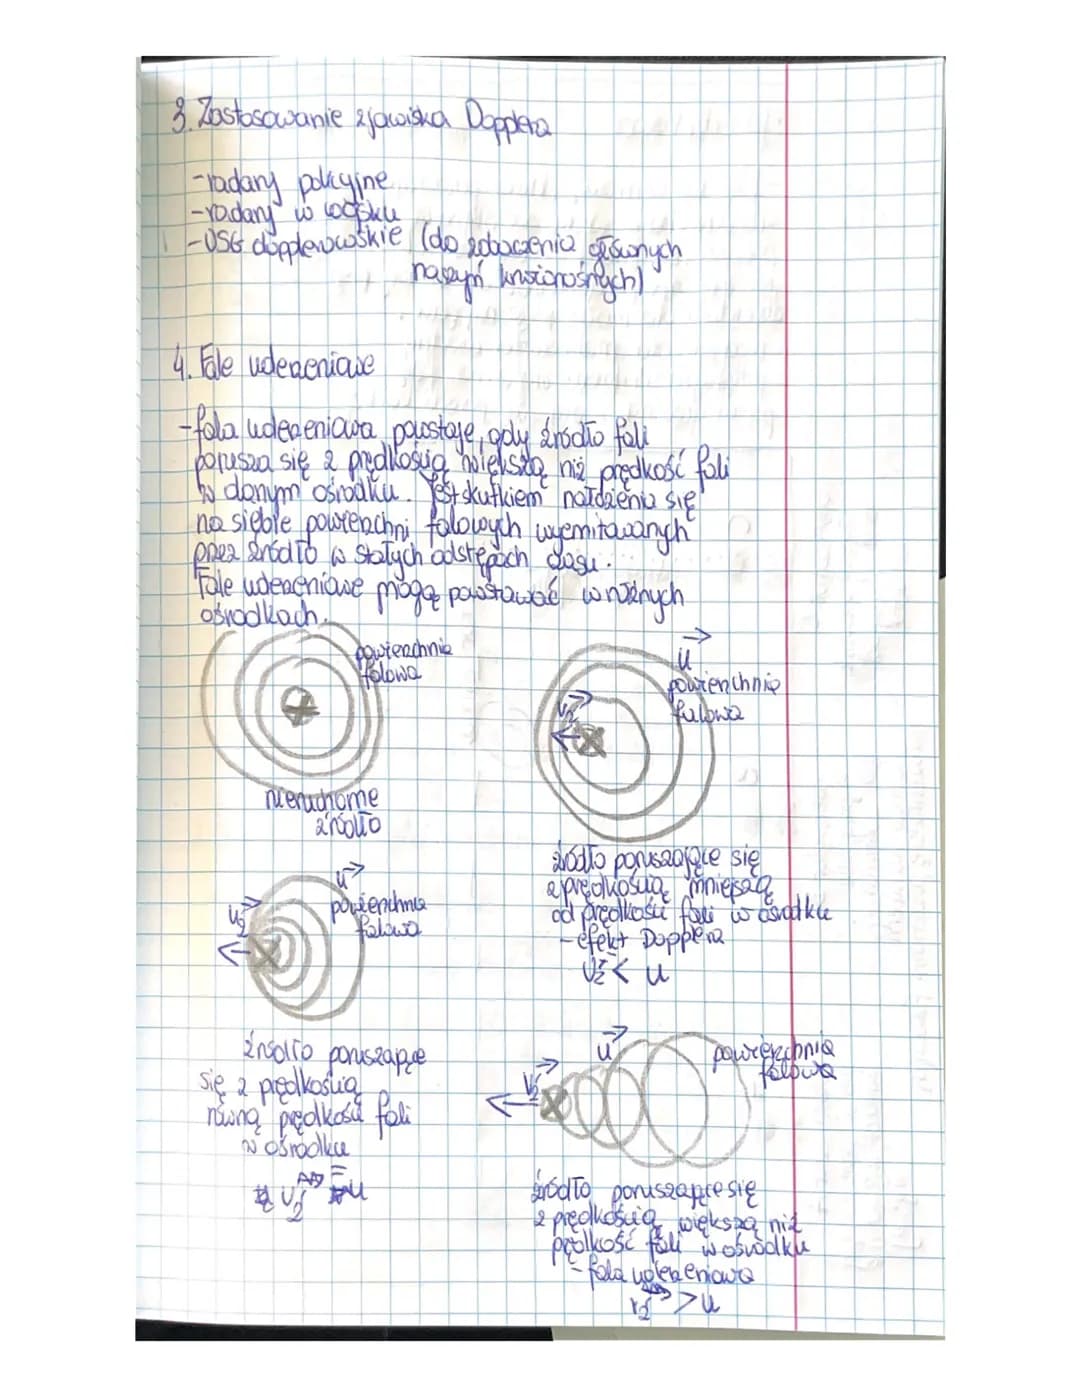 3. Zastosowanie zjawiska Dopplera
-radary policyjne
-radary w wojsku
-USG dopplerowskie (do zobaczenia głównych
naczyń krwionośnych)
4. Fale uderzeniowe
-fala uderzeniowa powstaje, gdy źródło fali
porusza się z prędkością większą niż prędkość fali
w danym ośrodku. Jest skutkiem nałożenia się
na siebie powierzchni falowych wyemitowanych
przez źródło w stałych odstępach czasu.
Fale uderzeniowe mogą powstawać w różnych
ośrodkach.
powierzchnia
falowa
nieruchome
źródło
u
powierzchnia
falowa
Vź
źródło poruszające się
z prędkością mniejszą
od prędkości fali w ośrodku
- efekt Dopplera
Vź < u
u
powierzchnia
falowa
Vź
źródło poruszające
się z prędkością
równą prędkości fali
w ośrodku
Vź = u
u
powierzchnia
falowa
Vź
źródło poruszające się
z prędkością większą niż
prędkość fali w ośrodku
- fala uderzeniowa
Vź > u